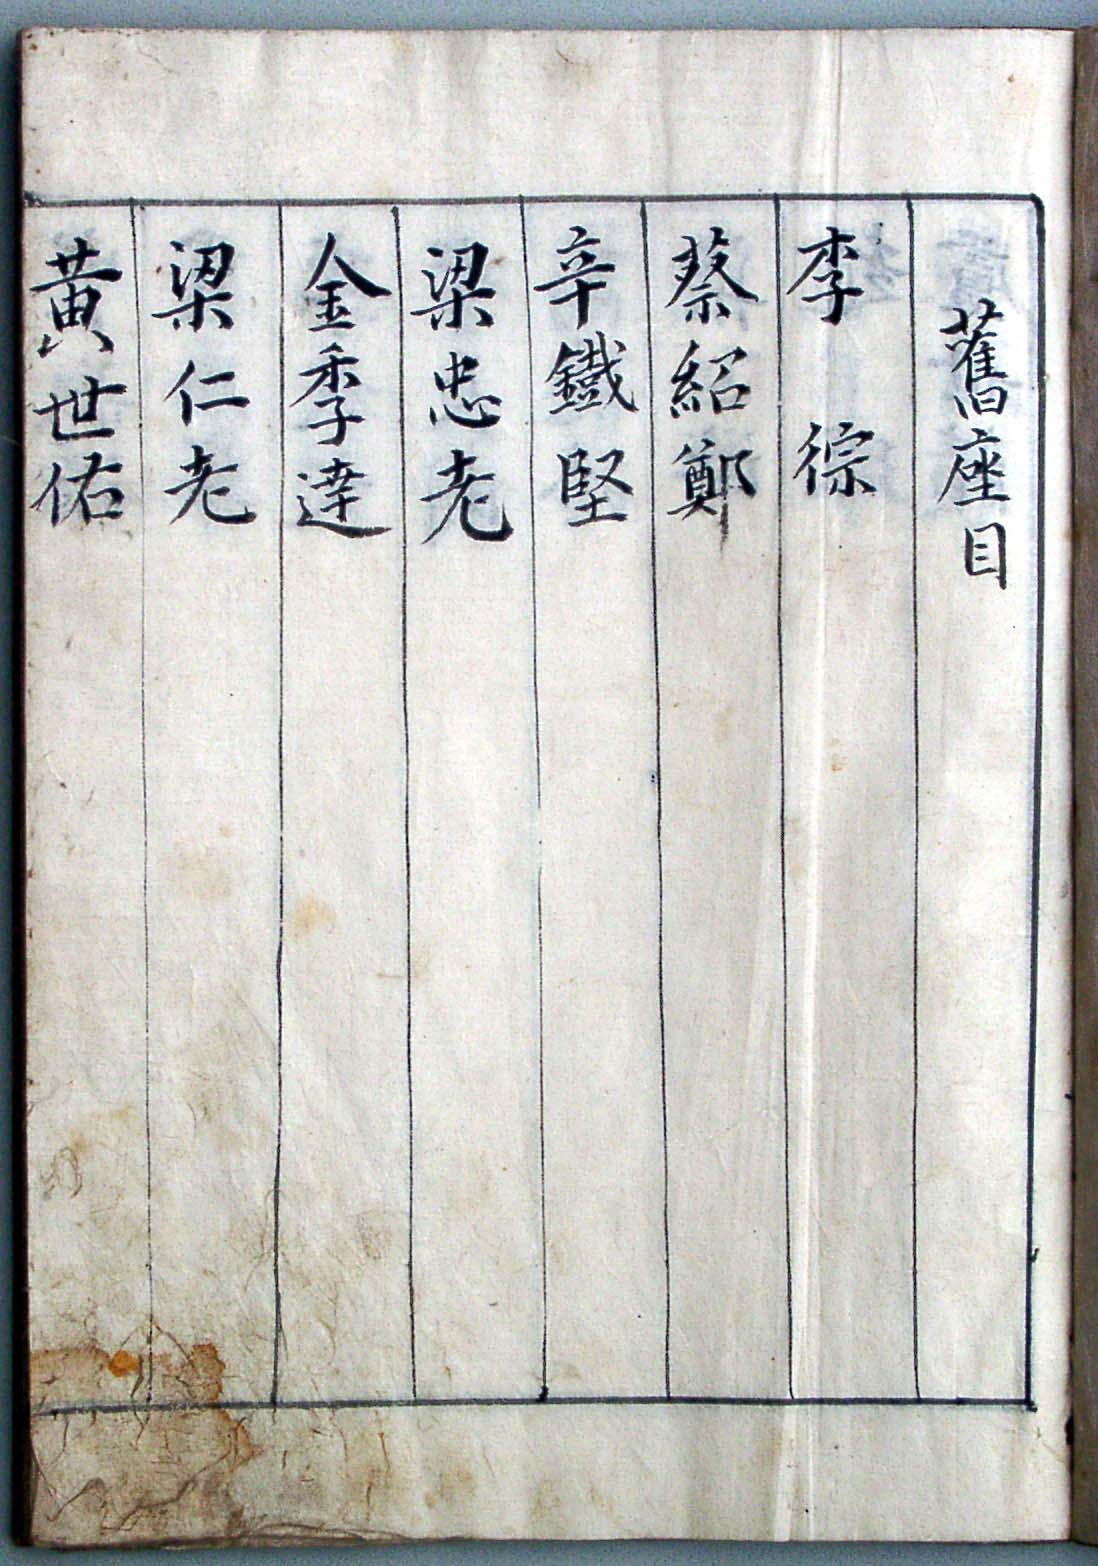 舊座目
李 徖
蔡紹鄭
辛鐵堅
梁忠老
金季達
梁仁老
黃世佑